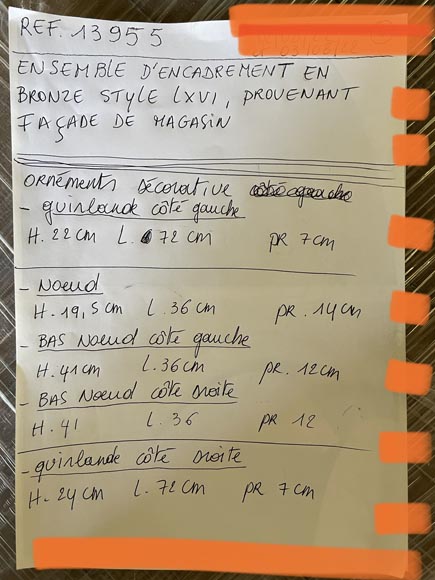 REF. 13955
ENSEMBLE D'ENCADREMENT EN
BRONZE STYLE LXVI, PROVENANT
FAÇADE DE MAGASIN
ORNÉMENTS DÉCORATIVE
- guirlande côté gauche
H. 22 cm L. 72 cm pr 7 cm
- Noeud
H. 19,5 cm l. 36 cm pr. 14 cm
- BAS Noeud côté gauche
H. 41 cm L. 36 cm pr. 12 cm
- BAS Noeud côté Droite
H. 41 L. 36 pr 12
- guirlande côté Droite
H. 24 cm L. 72 cm pr 7 cm